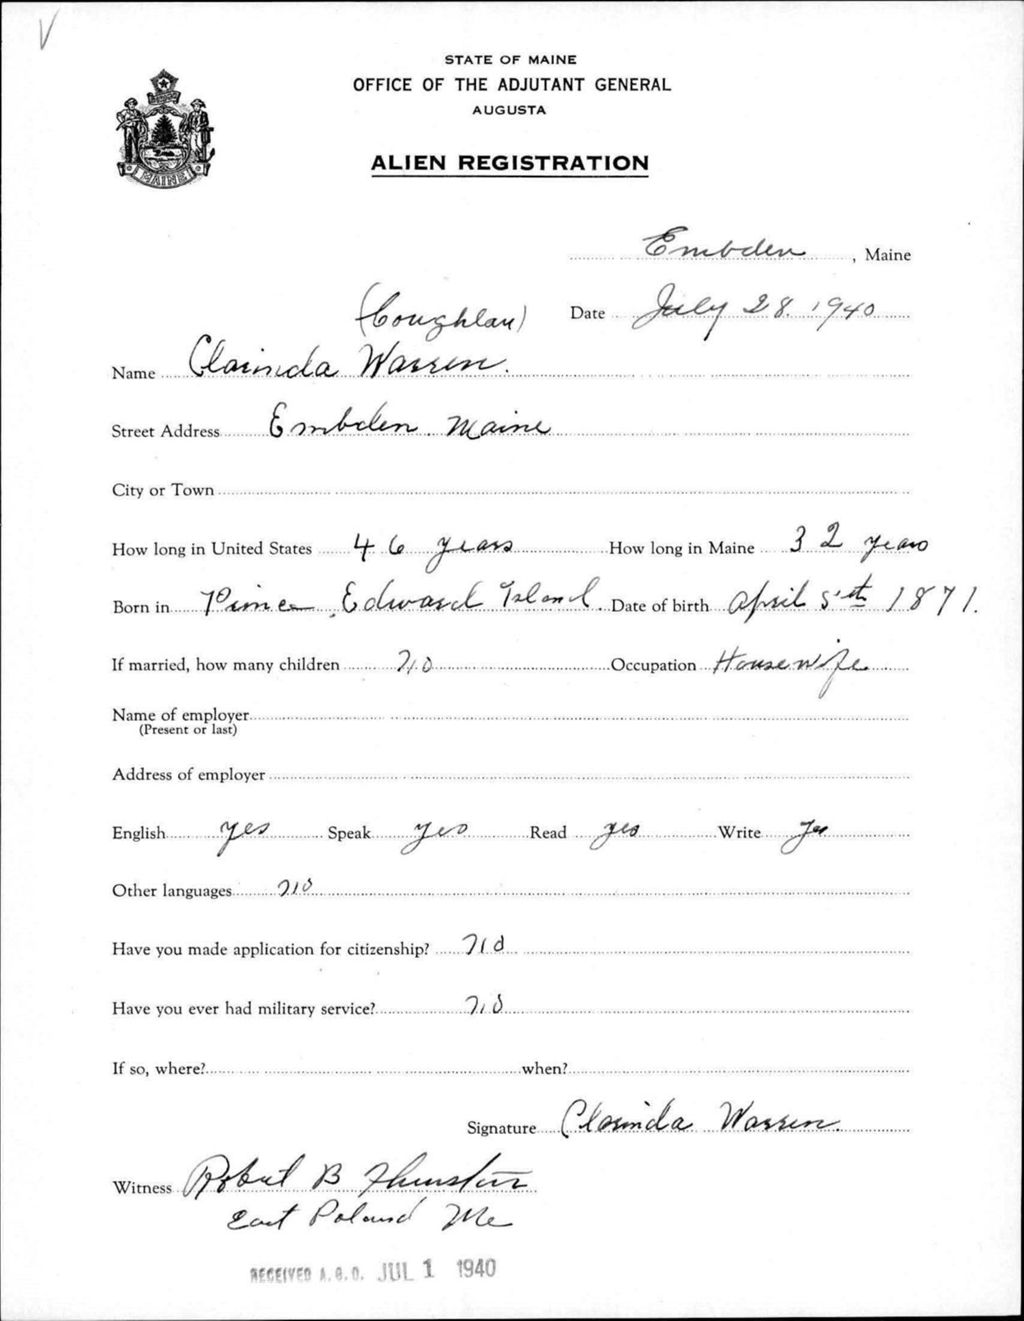 V
STATE OF MAINE
OFFICE OF THE ADJUTANT GENERAL
AUGUSTA
MAINE
ALIEN REGISTRATION
Embden, Maine
Date July 28. 1940
(Coughlan)
Name Clarinda Warren.
Street Address Embden. Maine
City or Town
How long in United States 46 years How long in Maine 32 years
Born in Prince Edward Island. Date of birth April 5th 1871.
If married, how many children no Occupation Housewife
Name of employer
(Present or last)
Address of employer
English yes Speak yes Read yes Write yes
Other languages no
Have you made application for citizenship? no
Have you ever had military service? no
If so, where? when?
Signature Clarinda Warren.
Witness Robert B Thurston
East Poland Me
RECEIVED A.G.O. JUL 1 1940